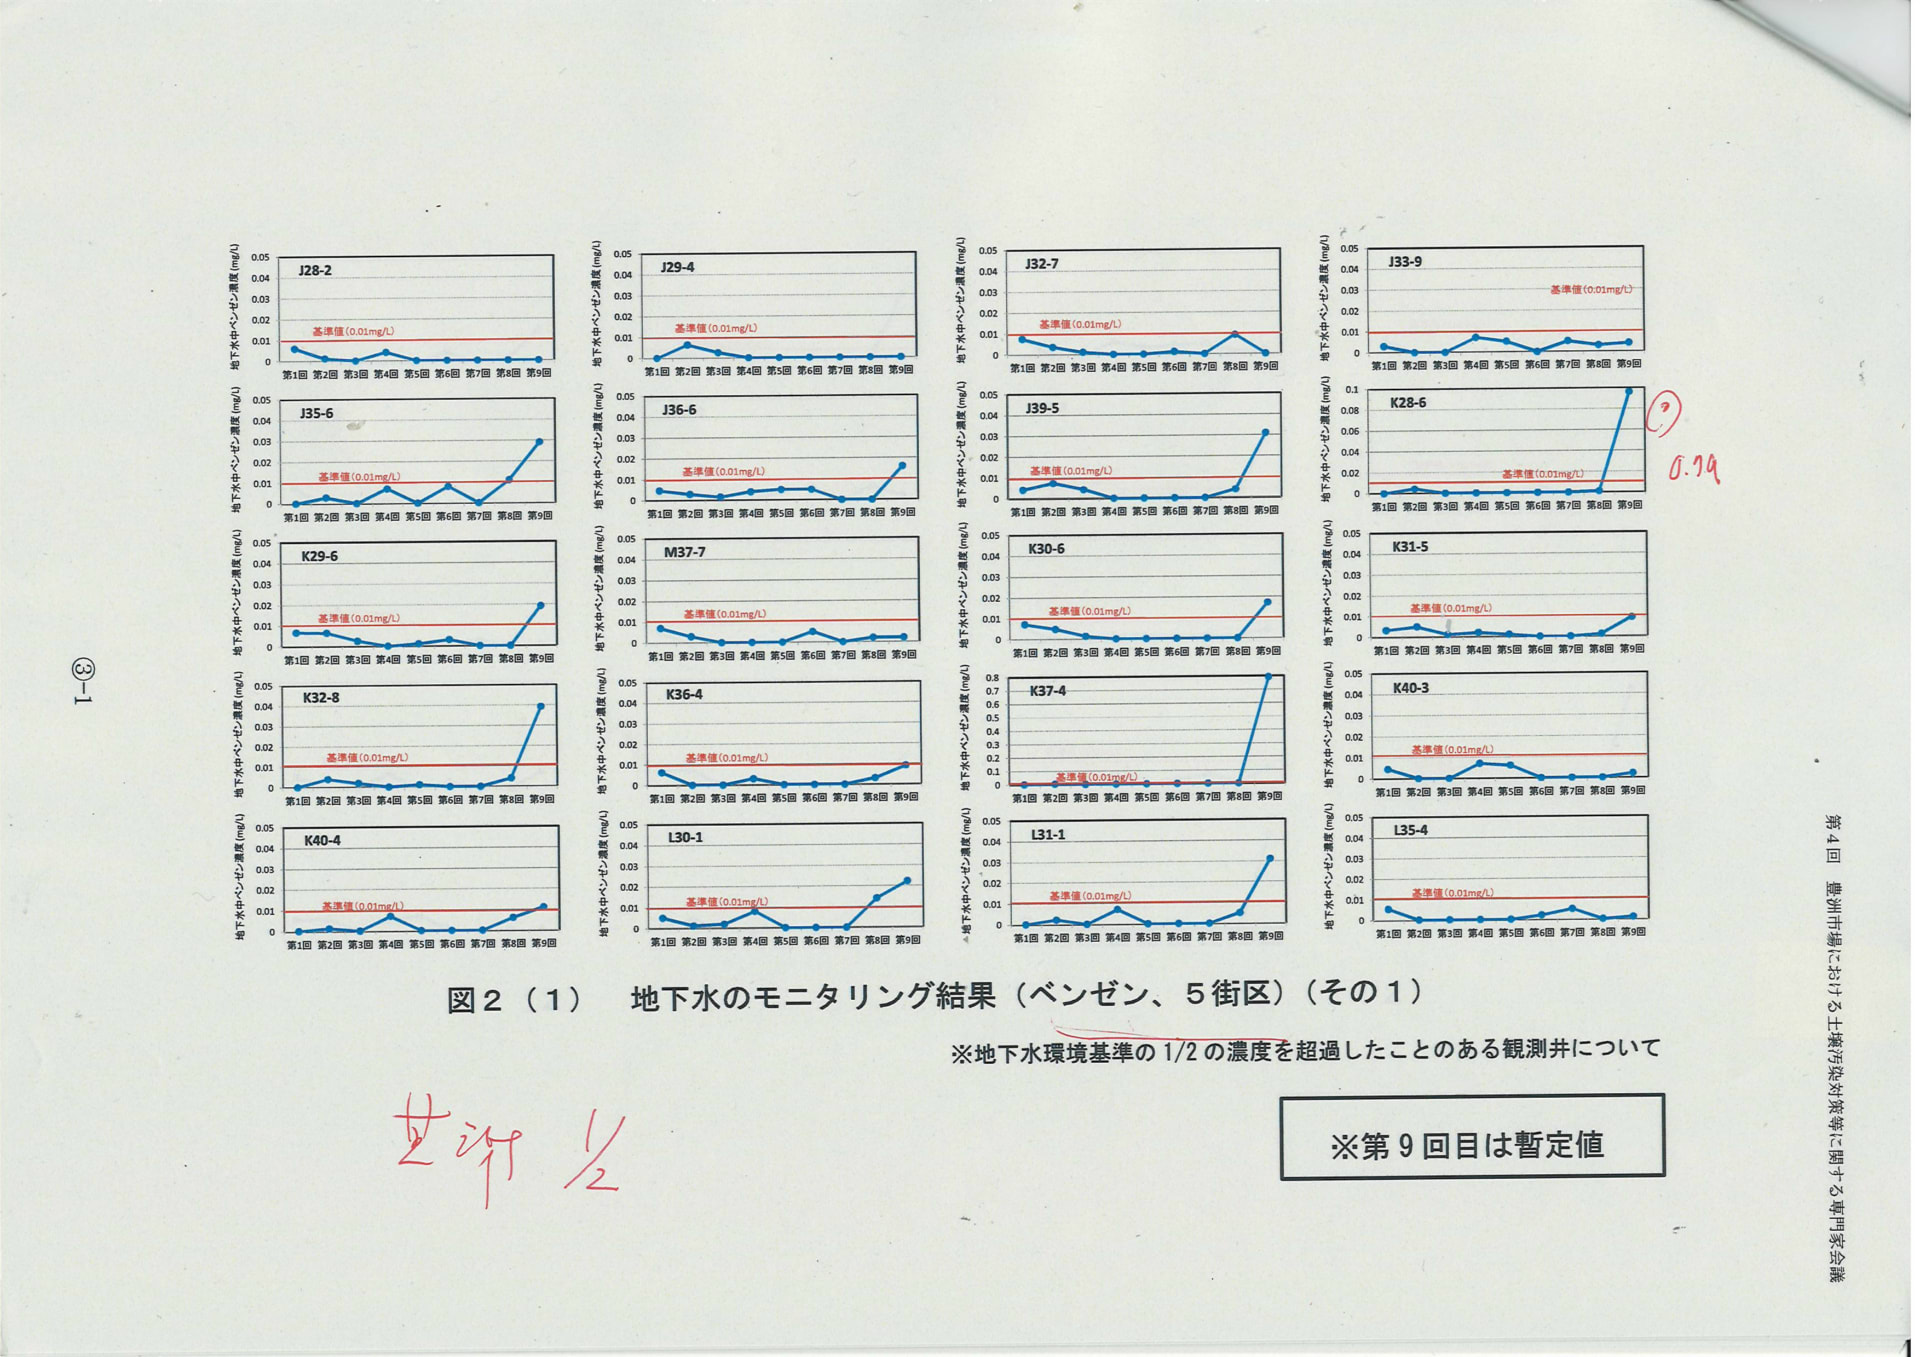 地下水中ベンゼン濃度(mg/L)
J28-2
0.05
0.04
0.03
0.02
0.01
0
基準値(0.01mg/L)
第1回 第2回 第3回 第4回 第5回 第6回 第7回 第8回 第9回
地下水中ベンゼン濃度(mg/L)
J29-4
0.05
0.04
0.03
0.02
0.01
0
基準値(0.01mg/L)
第1回 第2回 第3回 第4回 第5回 第6回 第7回 第8回 第9回
地下水中ベンゼン濃度(mg/L)
J32-7
0.05
0.04
0.03
0.02
0.01
0
基準値(0.01mg/L)
第1回 第2回 第3回 第4回 第5回 第6回 第7回 第8回 第9回
地下水中ベンゼン濃度(mg/L)
J33-9
0.05
0.04
0.03
0.02
0.01
0
基準値(0.01mg/L)
第1回 第2回 第3回 第4回 第5回 第6回 第7回 第8回 第9回
地下水中ベンゼン濃度(mg/L)
J35-6
0.05
0.04
0.03
0.02
0.01
0
基準値(0.01mg/L)
第1回 第2回 第3回 第4回 第5回 第6回 第7回 第8回 第9回
地下水中ベンゼン濃度(mg/L)
J36-6
0.05
0.04
0.03
0.02
0.01
0
基準値(0.01mg/L)
第1回 第2回 第3回 第4回 第5回 第6回 第7回 第8回 第9回
地下水中ベンゼン濃度(mg/L)
J39-5
0.05
0.04
0.03
0.02
0.01
0
基準値(0.01mg/L)
第1回 第2回 第3回 第4回 第5回 第6回 第7回 第8回 第9回
地下水中ベンゼン濃度(mg/L)
K28-6
0.1
0.08
0.06
0.04
0.02
0
基準値(0.01mg/L)
第1回 第2回 第3回 第4回 第5回 第6回 第7回 第8回 第9回
?
0.79
地下水中ベンゼン濃度(mg/L)
K29-6
0.05
0.04
0.03
0.02
0.01
0
基準値(0.01mg/L)
第1回 第2回 第3回 第4回 第5回 第6回 第7回 第8回 第9回
地下水中ベンゼン濃度(mg/L)
M37-7
0.05
0.04
0.03
0.02
0.01
0
基準値(0.01mg/L)
第1回 第2回 第3回 第4回 第5回 第6回 第7回 第8回 第9回
地下水中ベンゼン濃度(mg/L)
K30-6
0.05
0.04
0.03
0.02
0.01
0
基準値(0.01mg/L)
第1回 第2回 第3回 第4回 第5回 第6回 第7回 第8回 第9回
地下水中ベンゼン濃度(mg/L)
K31-5
0.05
0.04
0.03
0.02
0.01
0
基準値(0.01mg/L)
第1回 第2回 第3回 第4回 第5回 第6回 第7回 第8回 第9回
地下水中ベンゼン濃度(mg/L)
K32-8
0.05
0.04
0.03
0.02
0.01
0
基準値(0.01mg/L)
第1回 第2回 第3回 第4回 第5回 第6回 第7回 第8回 第9回
地下水中ベンゼン濃度(mg/L)
K36-4
0.05
0.04
0.03
0.02
0.01
0
基準値(0.01mg/L)
第1回 第2回 第3回 第4回 第5回 第6回 第7回 第8回 第9回
地下水中ベンゼン濃度(mg/L)
K37-4
0.8
0.7
0.6
0.5
0.4
0.3
0.2
0.1
0
基準値(0.01mg/L)
第1回 第2回 第3回 第4回 第5回 第6回 第7回 第8回 第9回
地下水中ベンゼン濃度(mg/L)
K40-3
0.05
0.04
0.03
0.02
0.01
0
基準値(0.01mg/L)
第1回 第2回 第3回 第4回 第5回 第6回 第7回 第8回 第9回
地下水中ベンゼン濃度(mg/L)
K40-4
0.05
0.04
0.03
0.02
0.01
0
基準値(0.01mg/L)
第1回 第2回 第3回 第4回 第5回 第6回 第7回 第8回 第9回
地下水中ベンゼン濃度(mg/L)
L30-1
0.05
0.04
0.03
0.02
0.01
0
基準値(0.01mg/L)
第1回 第2回 第3回 第4回 第5回 第6回 第7回 第8回 第9回
地下水中ベンゼン濃度(mg/L)
L31-1
0.05
0.04
0.03
0.02
0.01
0
基準値(0.01mg/L)
第1回 第2回 第3回 第4回 第5回 第6回 第7回 第8回 第9回
地下水中ベンゼン濃度(mg/L)
L35-4
0.05
0.04
0.03
0.02
0.01
0
基準値(0.01mg/L)
第1回 第2回 第3回 第4回 第5回 第6回 第7回 第8回 第9回
図2(1) 地下水のモニタリング結果(ベンゼン、5街区)(その1)
※地下水環境基準の1/2の濃度を超過したことのある観測井について
基準 1/2
※第9回目は暫定値
③-1
第4回 豊洲市場における土壌汚染対策等に関する専門家会議